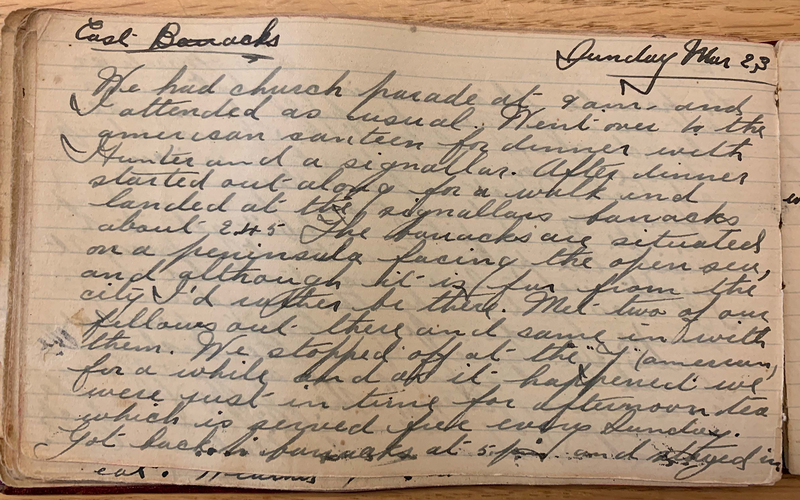 East Barracks
Sunday Mar 23
We had church parade at 9 am. and
I attended as usual. Went over to the
american canteen for dinner with
Hunter and a signallar. After dinner
started out along for a walk and
landed at the signallars barracks
about 2.45 The barracks are situated
on a peninsula facing the open sea,
and although it is far from the
city I'd rather be there. Met two of our
fellows out there and came in with
them. We stopped off at the "Y" (american)
for a while and as it happened we
were just in time for afternoon tea
which is served free every Sunday.
Got back in barracks at 5 pm and stayed in